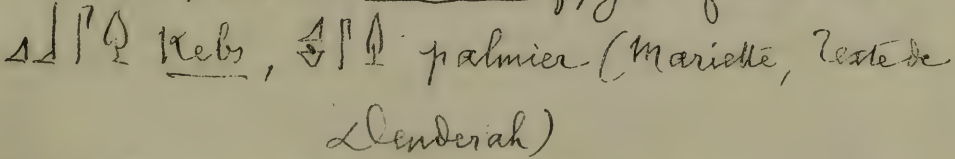 𓈎𓃀𓋴𓆭 Kebs, 𓋴𓆭 palmier (Mariette, Texte de
Denderah)